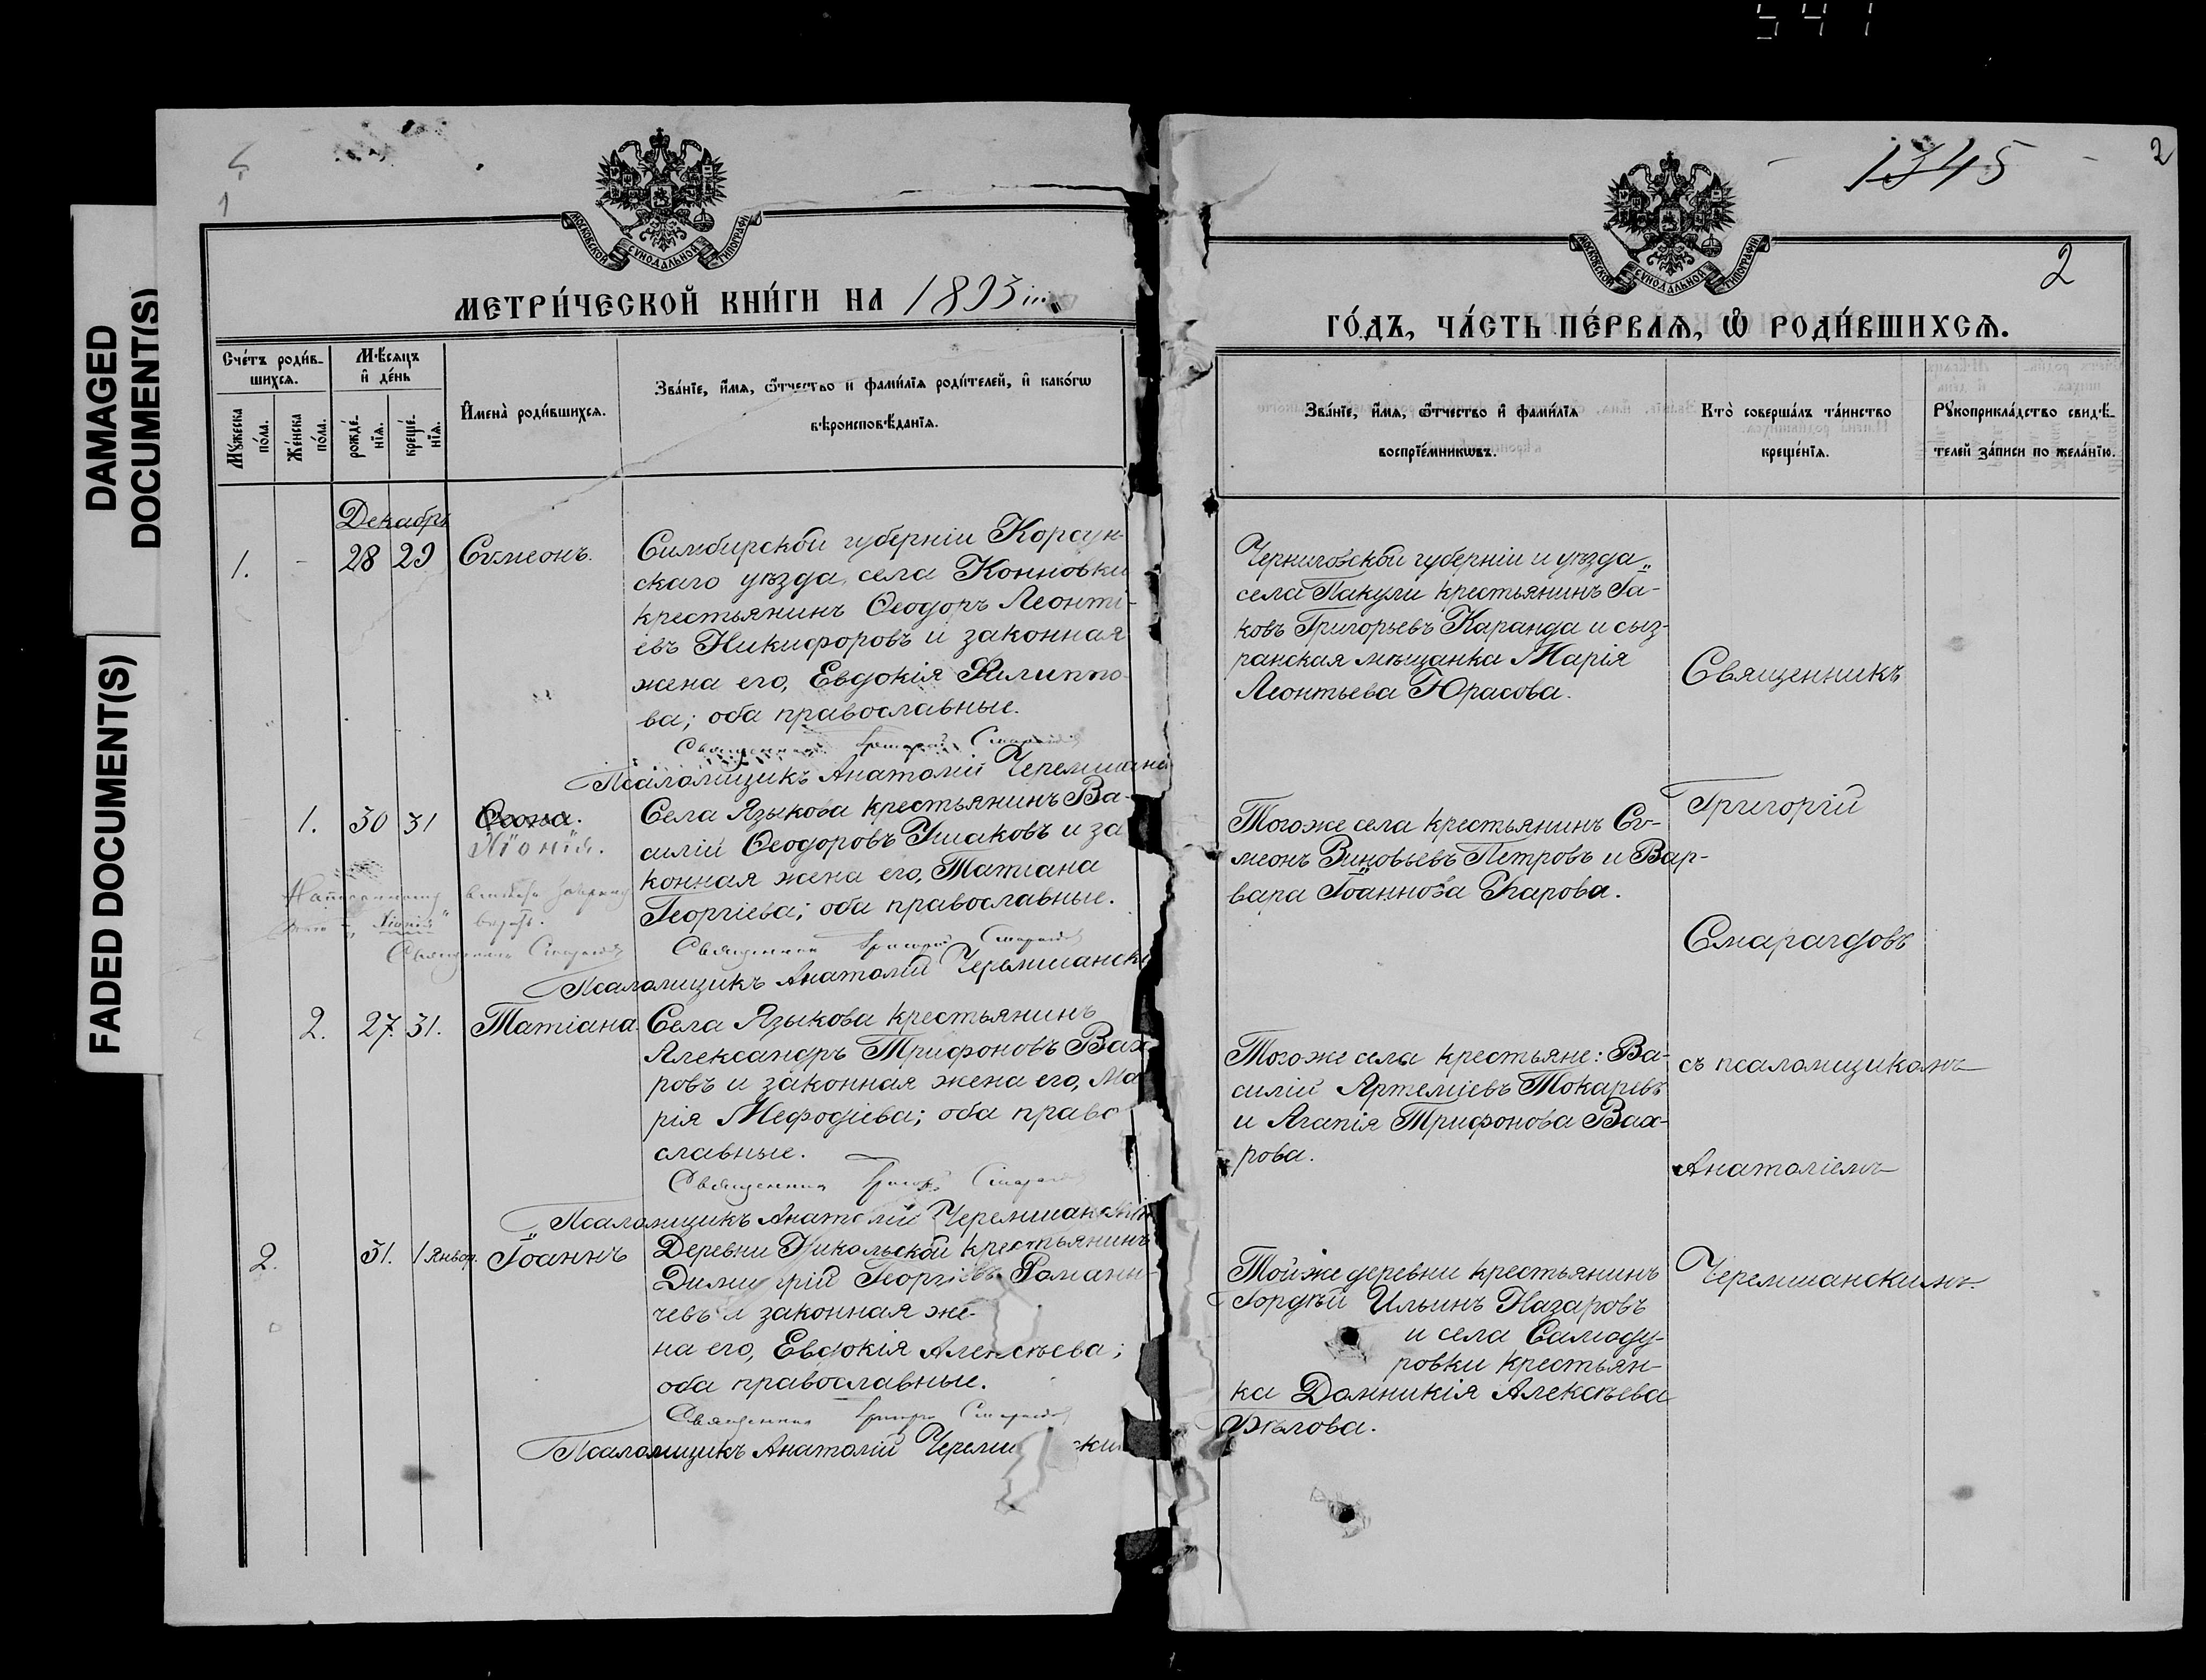 541
DAMAGED
DOCUMENT(S)
FADED DOCUMENT(S)
1
МОСКОВСКОЙ СѴНОДАЛЬНОЙ ТИПОГРАФІИ
МЕТРИ́ЧЕСКОЙ КНИ́ГИ НА 1893
Сче́тъ роди́в-
шихсѧ.
Мѣ́сѧцъ
и҆ де́нь
Мꙋ́жеска
по́ла.
Же́нска
по́ла.
рожде́-
нїѧ.
креще́-
нїѧ.
И҆мена̀ роди́вшихсѧ.
Зва́нїе, и҆́мѧ, ѻ҆́тчество и҆ фами́лїѧ роди́телей, и҆ како́гѡ
вѣроисповѣ́данїѧ.
Декабрь
1. - 28 29 Сѵмеонъ.
Симбирской губерніи Корсун-
скаго уѣзда, села Конновки
крестьянинъ Ѳеодоръ Леонті-
евъ Никифоровъ и законная
жена его, Евдокія Филиппо-
ва; оба православные.
Священникъ Григорій Смарагдовъ
Псаломщикъ Анатолій Черемшанс
1. 30 31
Хіонія.
Села Языкова крестьянинъ Ва-
силій Ѳеодоровъ Ушаковъ и за
конная жена его, Татіана
Георгіева; оба православные.
"Хіонія"
Священникъ Смарагдовъ
Священникъ Григорій Смарагдовъ
Псаломщикъ Анатолій Черемшанскі
2. 27. 31. Татіана.
Села Языкова крестьянинъ
Александръ Трифоновъ Вах
ровъ и законная жена его, Ма
рія Меѳодіева; оба право
славные.
Священникъ Григорій Смарагдовъ
Псаломщикъ Анатолій Черемшанскій
2. 31. 1 Январ. Іоаннъ
Деревни Никольской крестьянинъ
Димитрій Георгіевъ Романы-
чевъ и законная же-
на его, Евдокія Алексѣева;
оба православные.
Священникъ Григорій Смарагдовъ
Псаломщикъ Анатолій Черемш ски
1345
2
2
МОСКОВСКОЙ СѴНОДАЛЬНОЙ ТИПОГРАФІИ
ГО́ДЪ, ЧА́СТЬ ПЕ́РВАѦ, Ѡ҆ РОДИ́ВШИХСѦ.
Зва́нїе, и҆́мѧ, ѻ҆́тчество и҆ фами́лїѧ
воспрїе́мникѡвъ.
Кто̀ соверша́лъ та́инство
креще́нїѧ.
Рꙋкоприкла́дство свидѣ́-
телей за́писи по жела́нїю.
Черниговской губерніи и уѣзда
села Пакули крестьянинъ Іа-
ковъ Григорьевъ Каранда и сыз-
ранская мѣщанка Марія
Леонтьева Юрасова.
Священникъ
Григорій
Того же села крестьянинъ Сѵ-
меонъ Зиновьевъ Петровъ и Вар-
вара Іоаннова Жарова.
Смарагдовъ
Того же села крестьяне: Ва-
силій Артеміевъ Токаревъ
и Агапія Трифонова Вах-
рова.
съ псаломщикомъ
Анатоліемъ
Той же деревни крестьянинъ
Гордѣй Ильинъ Назаровъ
и села Самоду-
ровки крестьян-
ка Домникія Алексѣева
Черемшанскимъ.